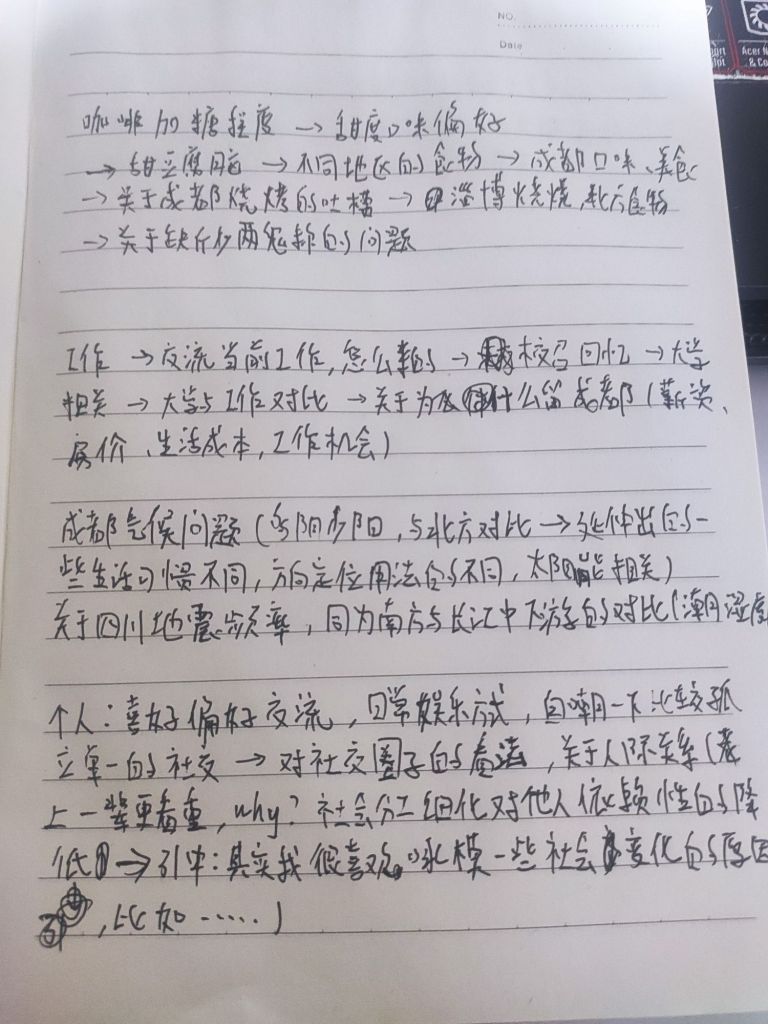 NO.
Date
Acer N
& Co
咖啡加糖程度 → 甜度口味偏好
→ 甜豆腐脑 → 不同地区的食物 → 成都口味、美食
→ 关于成都烧烤的吐槽 → 淄博烧烤,北方食物
→ 关于缺斤少两宽称的问题
工作 → 交流当前工作,怎么来的 → 校召回忆 → 大学
相关 → 大学与工作对比 → 关于为什么留成都(薪资、
房价、生活成本,工作机会)
成都气候问题(多阴少阳,与北方对比 → 延伸出的一
些生活习惯不同,方向定位用法的不同,太阳能相关)
关于四川地震频率,同为南方与长江中下游的对比(潮湿度
个人:喜好偏好交流,日常娱乐方式,自嘲一下比较孤
立单一的社交 → 对社交圈子的看法,关于人际关系(老
上一辈更看重,why?社会分工细化对他人依赖性的降
低 → 引申:其实我很喜欢琢模一些社会变化的原因
,比如……)